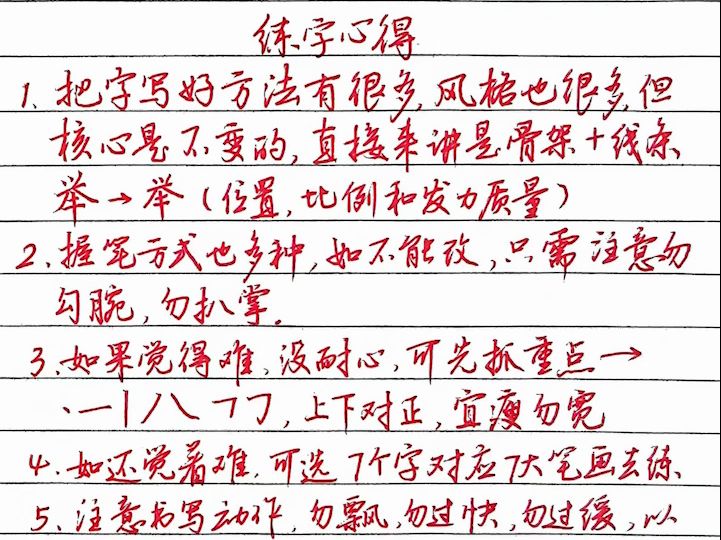 练字心得
1. 把字写好方法有很多,风格也很多,但
核心是不变的,直接来讲是骨架+线条
举→举(位置,比例和发力质量)
2. 握笔方式也多种,如不能改,只需注意勿
勾腕,勿扒掌.
3. 如果觉得难,没耐心,可先抓重点→
丶一丨丿乀㇕㇆,上下对正,宜瘦勿宽
4. 如还觉着难,可选7个字对应7大笔画去练
5. 注意书写动作,勿飘,勿过快,勿过缓,以